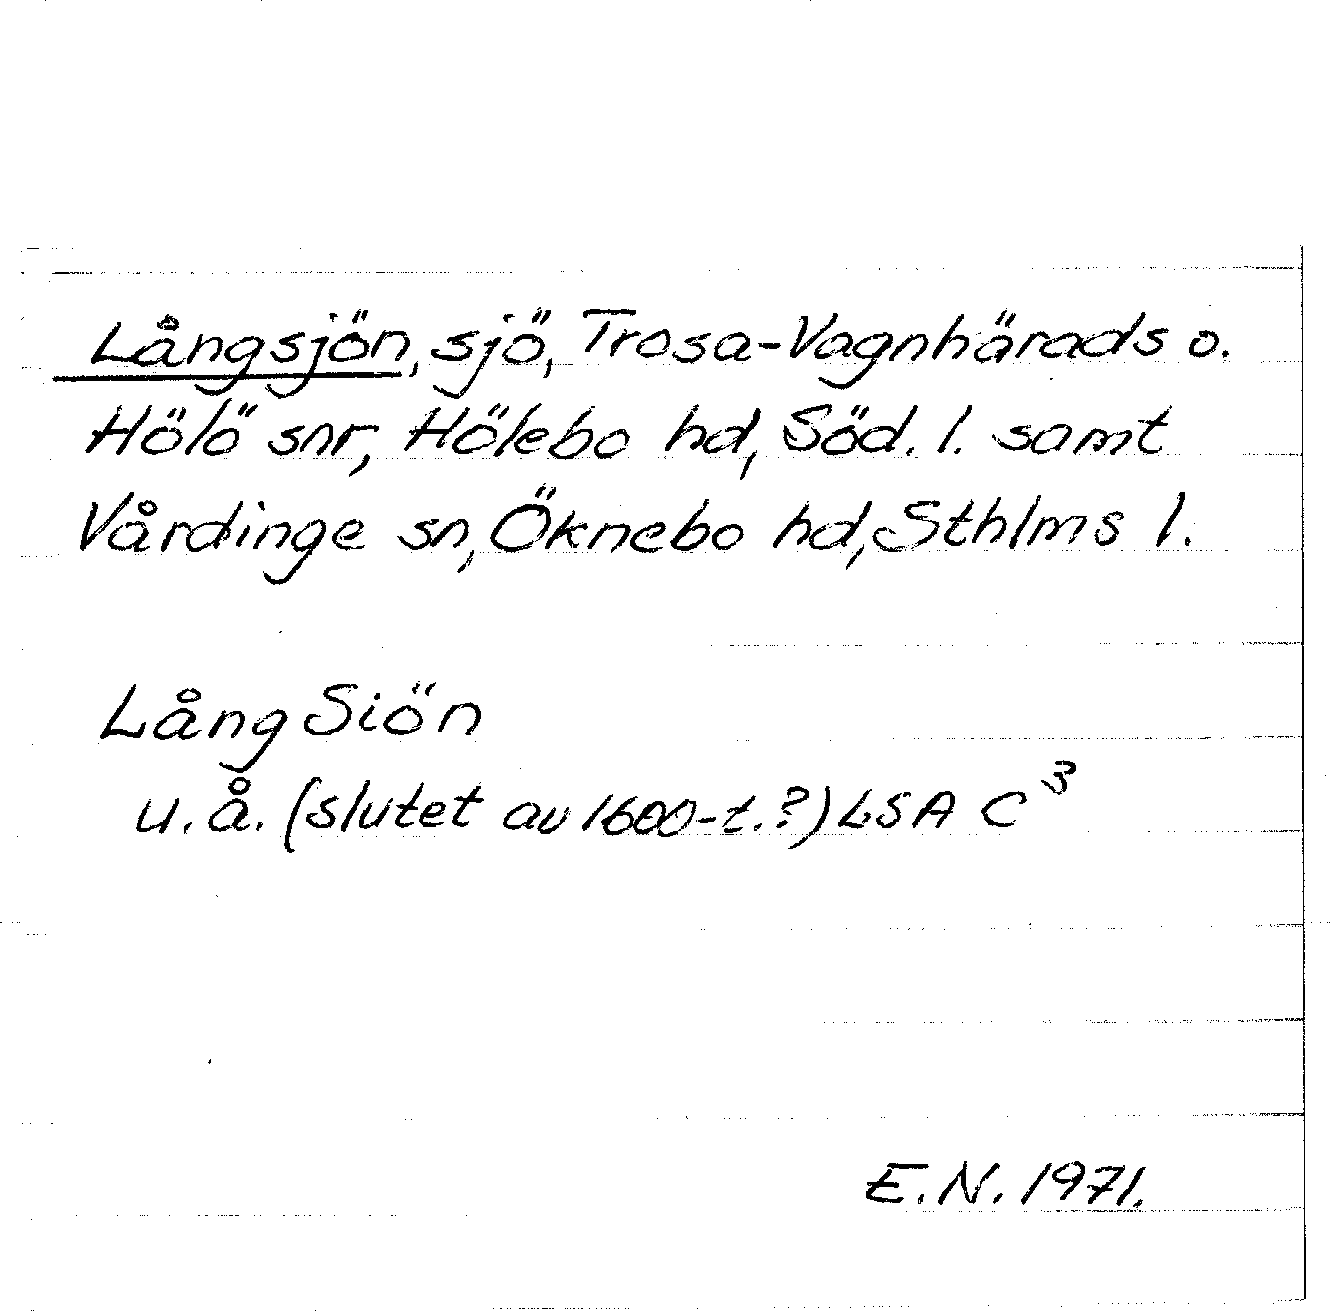 Långsjön, sjö, Trosa-Vagnhärads o.
Hölö snr, Hölebo hd, Söd. l. samt
Vårdinge sn, Öknebo hd, Sthlms l.
Lång Siön
u.å. (slutet av 1600-t.?) LSA C³
E.N. 1971.